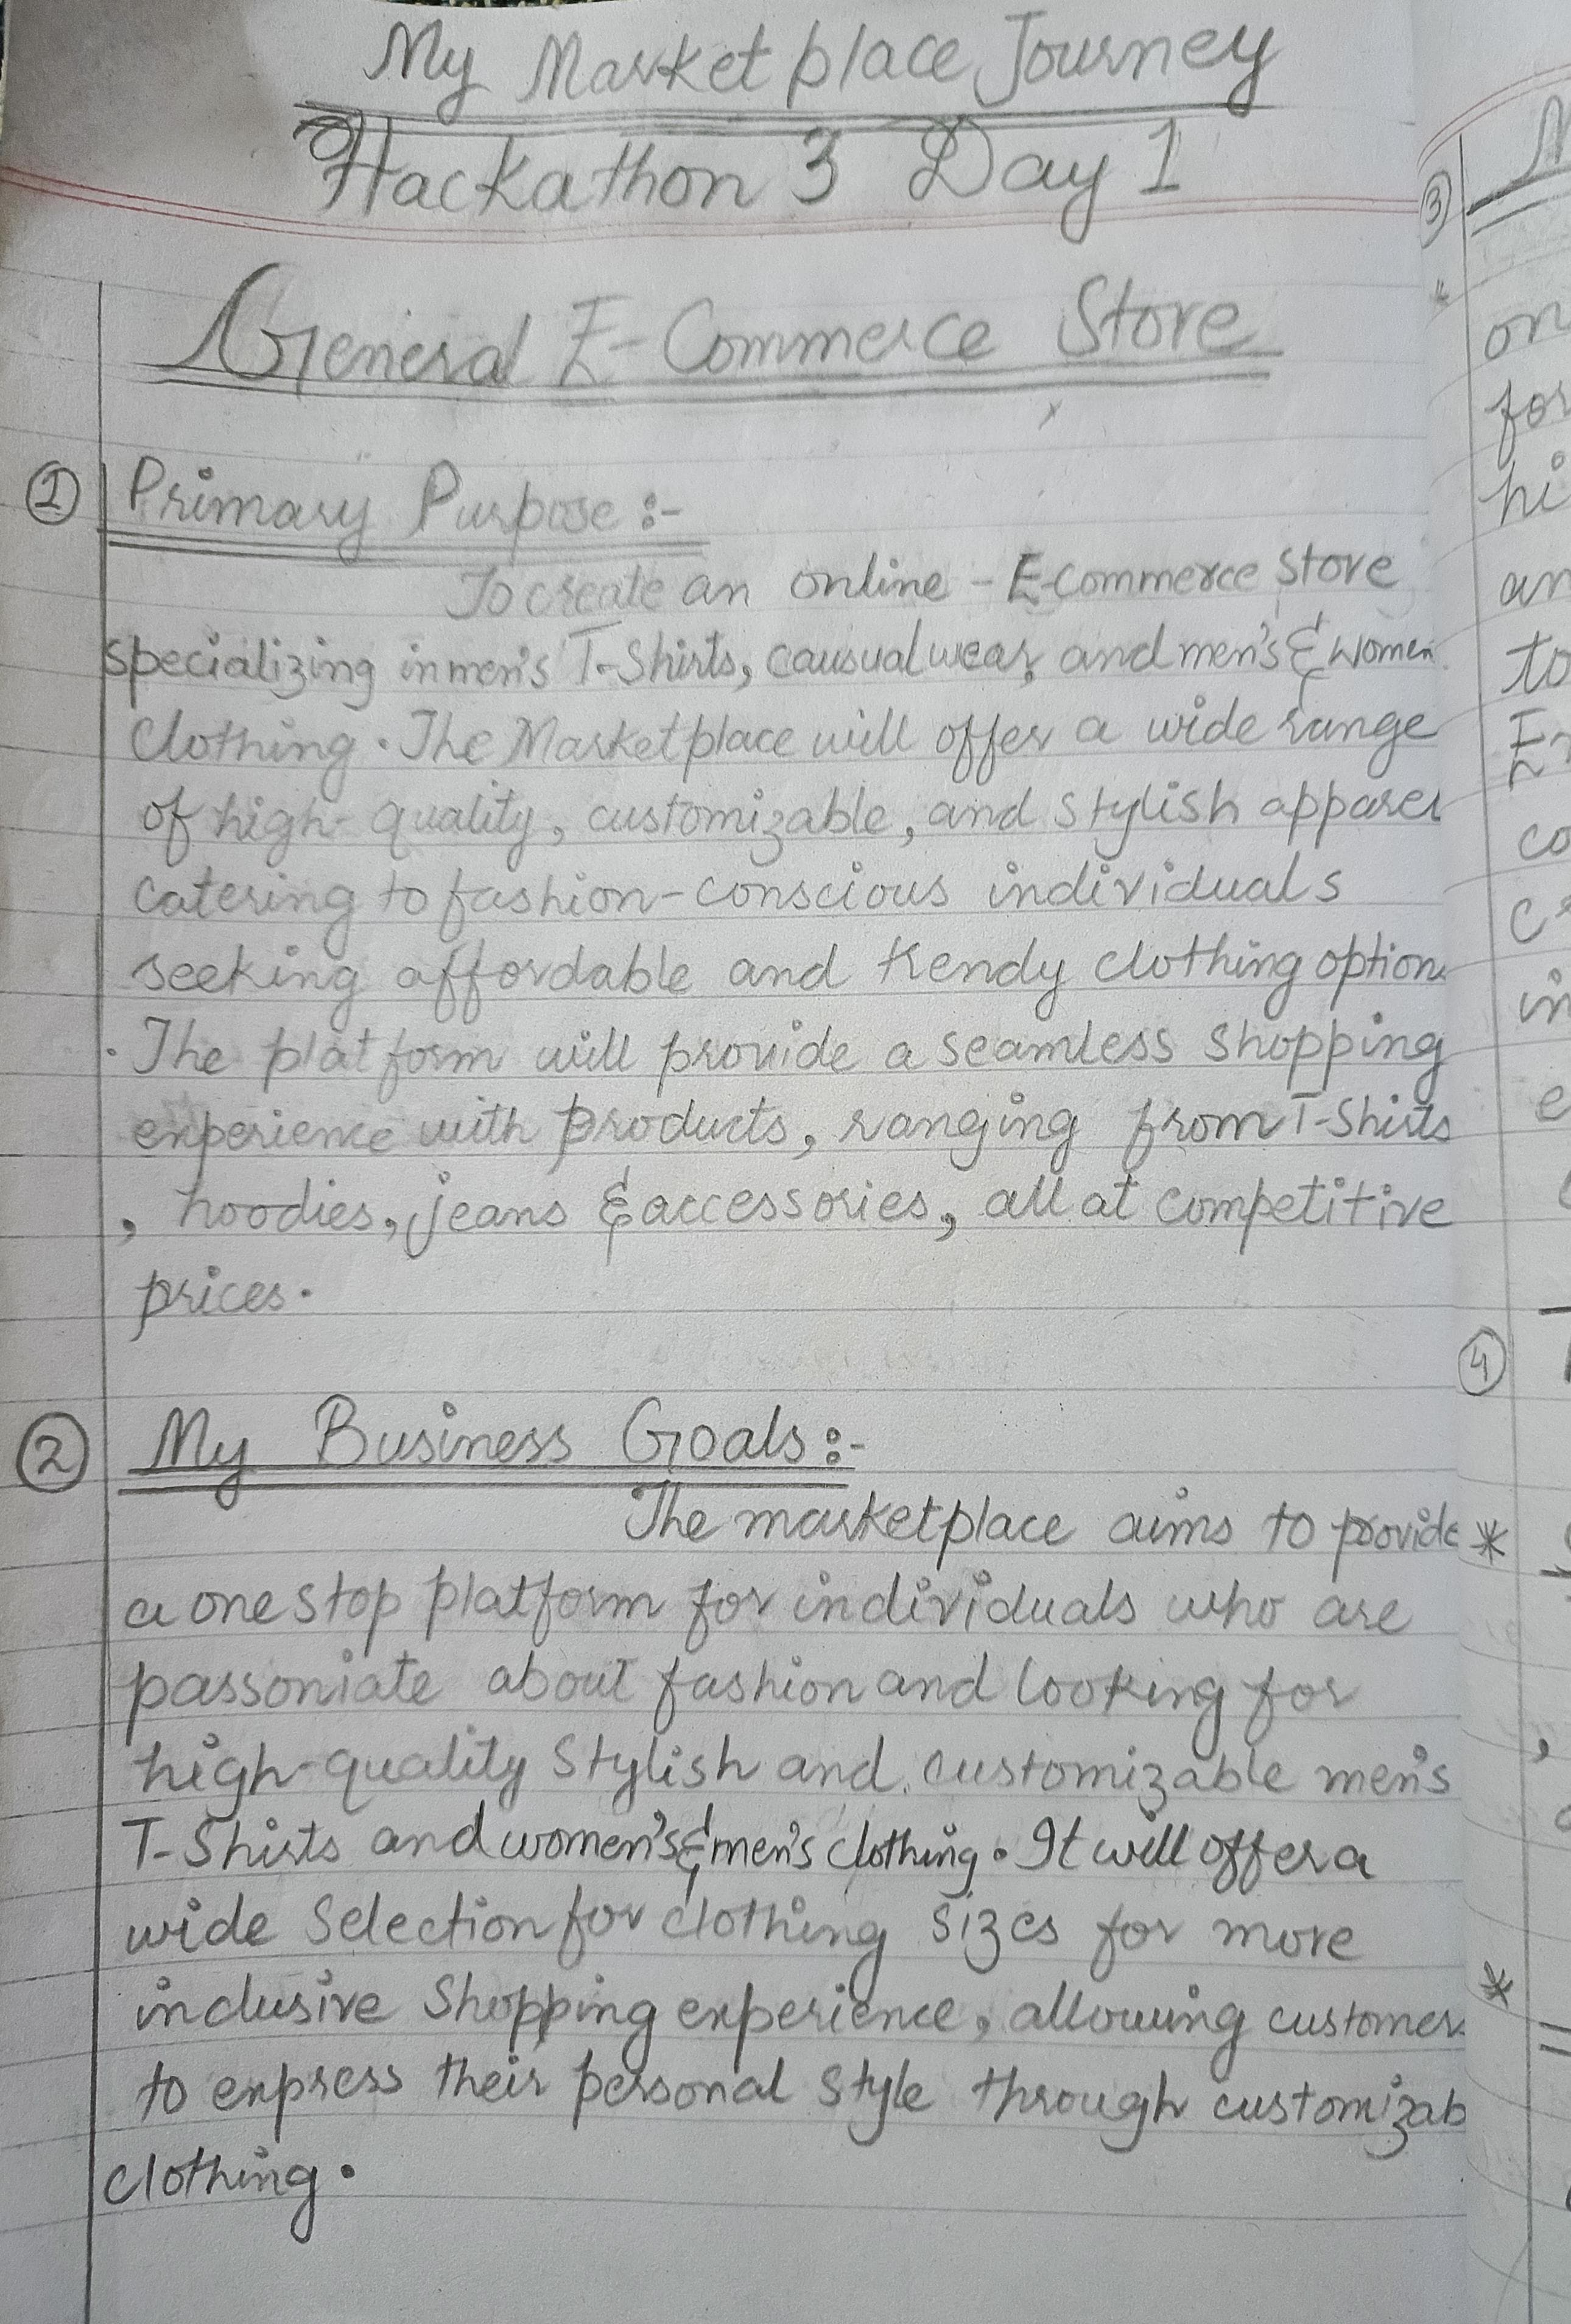 My Marketplace Journey
Hackathon 3 Day 1
General E-Commerce Store
① Primary Purpose :-
To create an online - E-commerce store
specializing in men's T-Shirts, causual wear, and men's & women
clothing. The Marketplace will offer a wide range
of high-quality, customizable, and stylish apparel
catering to fashion-conscious individuals
seeking affordable and trendy clothing option
. The platform will provide a seamless shopping
experience with products, ranging from T-Shirts
, hoodies, jeans & accessories, all at competitive
prices.
② My Business Goals :-
The marketplace aims to provide
a one stop platform for individuals who are
passoniate about fashion and looking for
high-quality stylish and customizable men's
T-Shirts and women's & men's clothing. It will offer a
wide selection for clothing sizes for more
inclusive shopping experience, allowing customer
to express their personal style through customizab
clothing.
③
on
for
hi
an
to
co
in
④
*
*